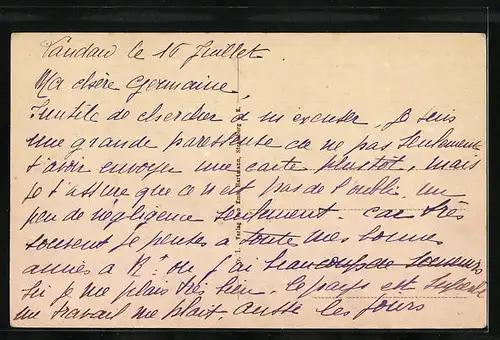 Landau le 16 Juillet.
Ma chère Germaine,
Inutile de chercher à m'excuser. je suis
une grande paresseuse de ne pas seulement
t'avoir envoyer une carte plustot, mais
je t'assure que ce n'est pas de l'oubli un
peu de négligence seulement. car très
souvent je penses à toute mes bonnes
amies à R. où j'ai beaucoup de
Ici je me plais très bien. le pays est superbe
mon travail me plait. aussi les jours
Verlag von Straßburg i. E.